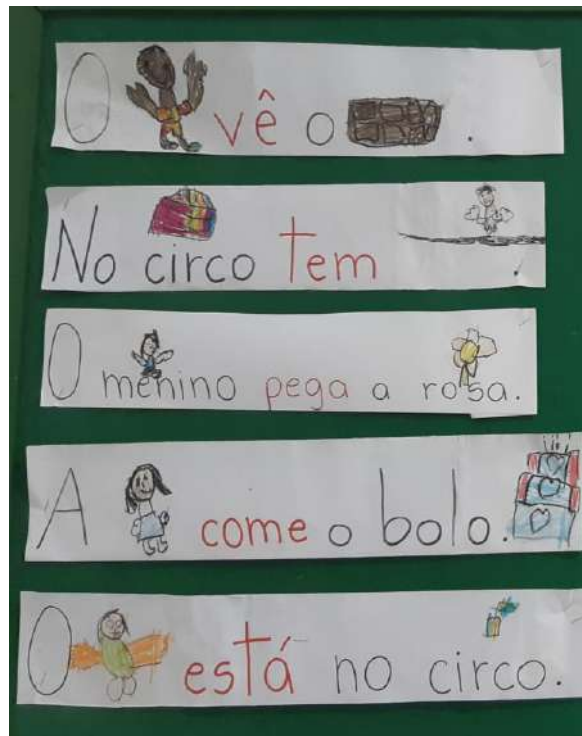 O vê o .
No circo tem .
O menino pega a rosa.
A come o bolo.
O está no circo.